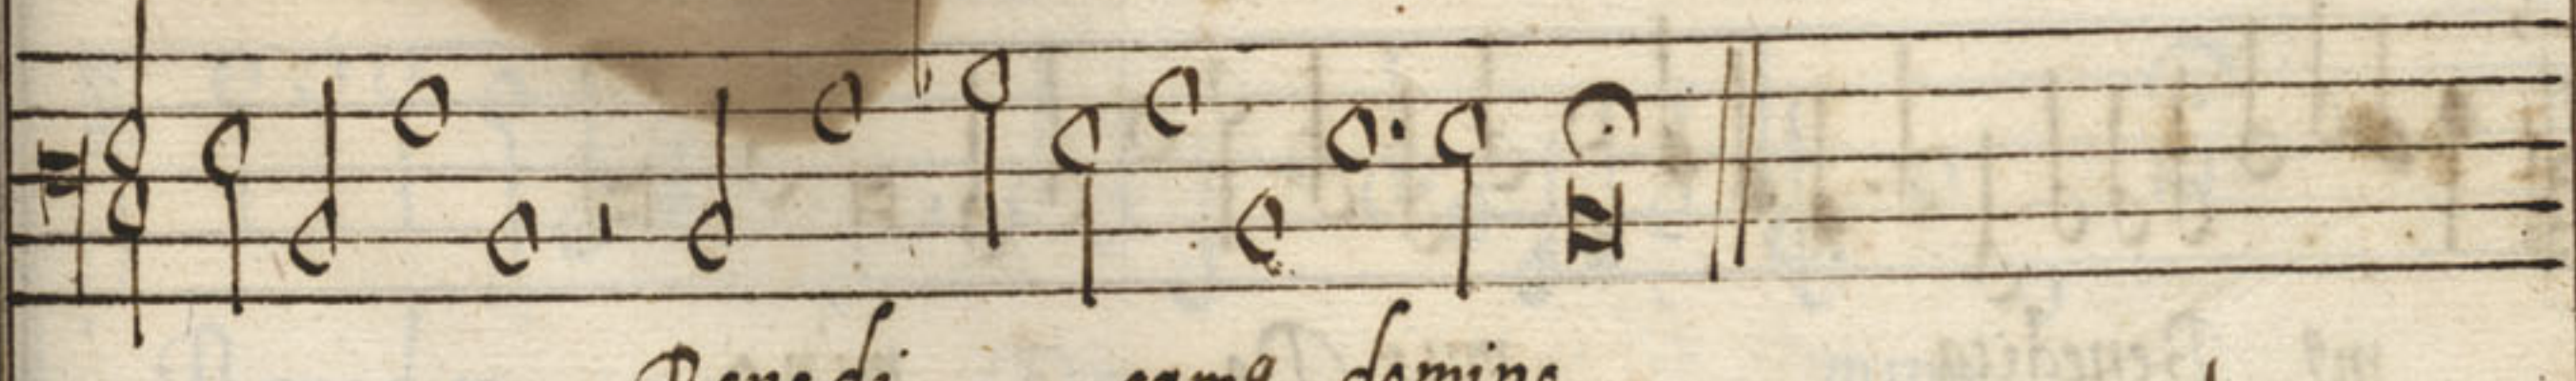 Benedi camꝰ domino